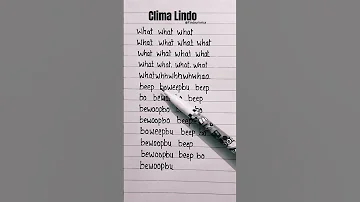 Clima Lindo
What what what
What what what what
What what what what
What what what what
whatwhwhwhwhaa
beep boweepbu beep
bo bew beep
bewoopbo bo
bewoopbo beep
boweepbu beep bo
bewoopbu beep
bewoopbu beep bo
bewoopbu